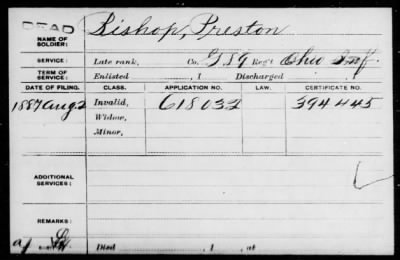 DEAD
NAME OF SOLDIER: Bishop, Preston
SERVICE: Late rank, Co. G 89 Reg't Ohio Inf.
TERM OF SERVICE: Enlisted , 1 Discharged , 1
DATE OF FILING. CLASS. APPLICATION NO. LAW. CERTIFICATE NO.
1887 Aug 2 Invalid, 618032 394445
Widow,
Minor,
ADDITIONAL SERVICES:
REMARKS:
Died , 1 , at